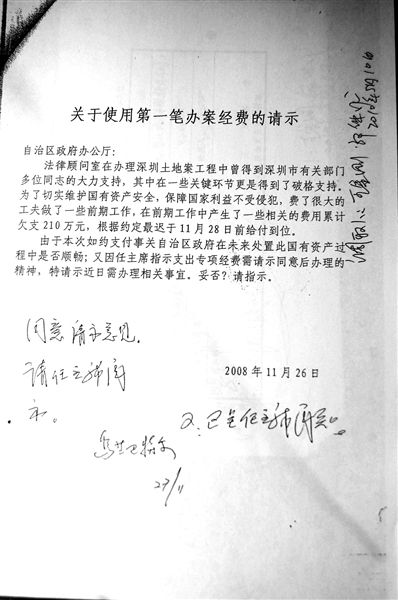 关于使用第一笔办案经费的请示
自治区政府办公厅：
法律顾问室在办理深圳土地案工程中曾得到深圳市有关部门
多位同志的大力支持，其中在一些关键环节更是得到了破格支持。
为了切实维护国有资产安全，保障国家利益不受侵犯，费了很大的
工夫做了一些前期工作，在前期工作中产生了一些相关的费用累计
欠支 210 万元，根据约定最迟于 11 月 28 日前给付到位。
由于本次如约支付事关自治区政府在未来处置此国有资产过
程中是否顺畅；又因任主席指示支出专项经费需请示同意后办理的
精神，特请示近日需办理相关事宜。妥否？请指示。
2008 年 11 月 26 日
同意请示意见。
请任主席阅
示。
又：已呈任主席阅
乌兰巴特尔
27/11